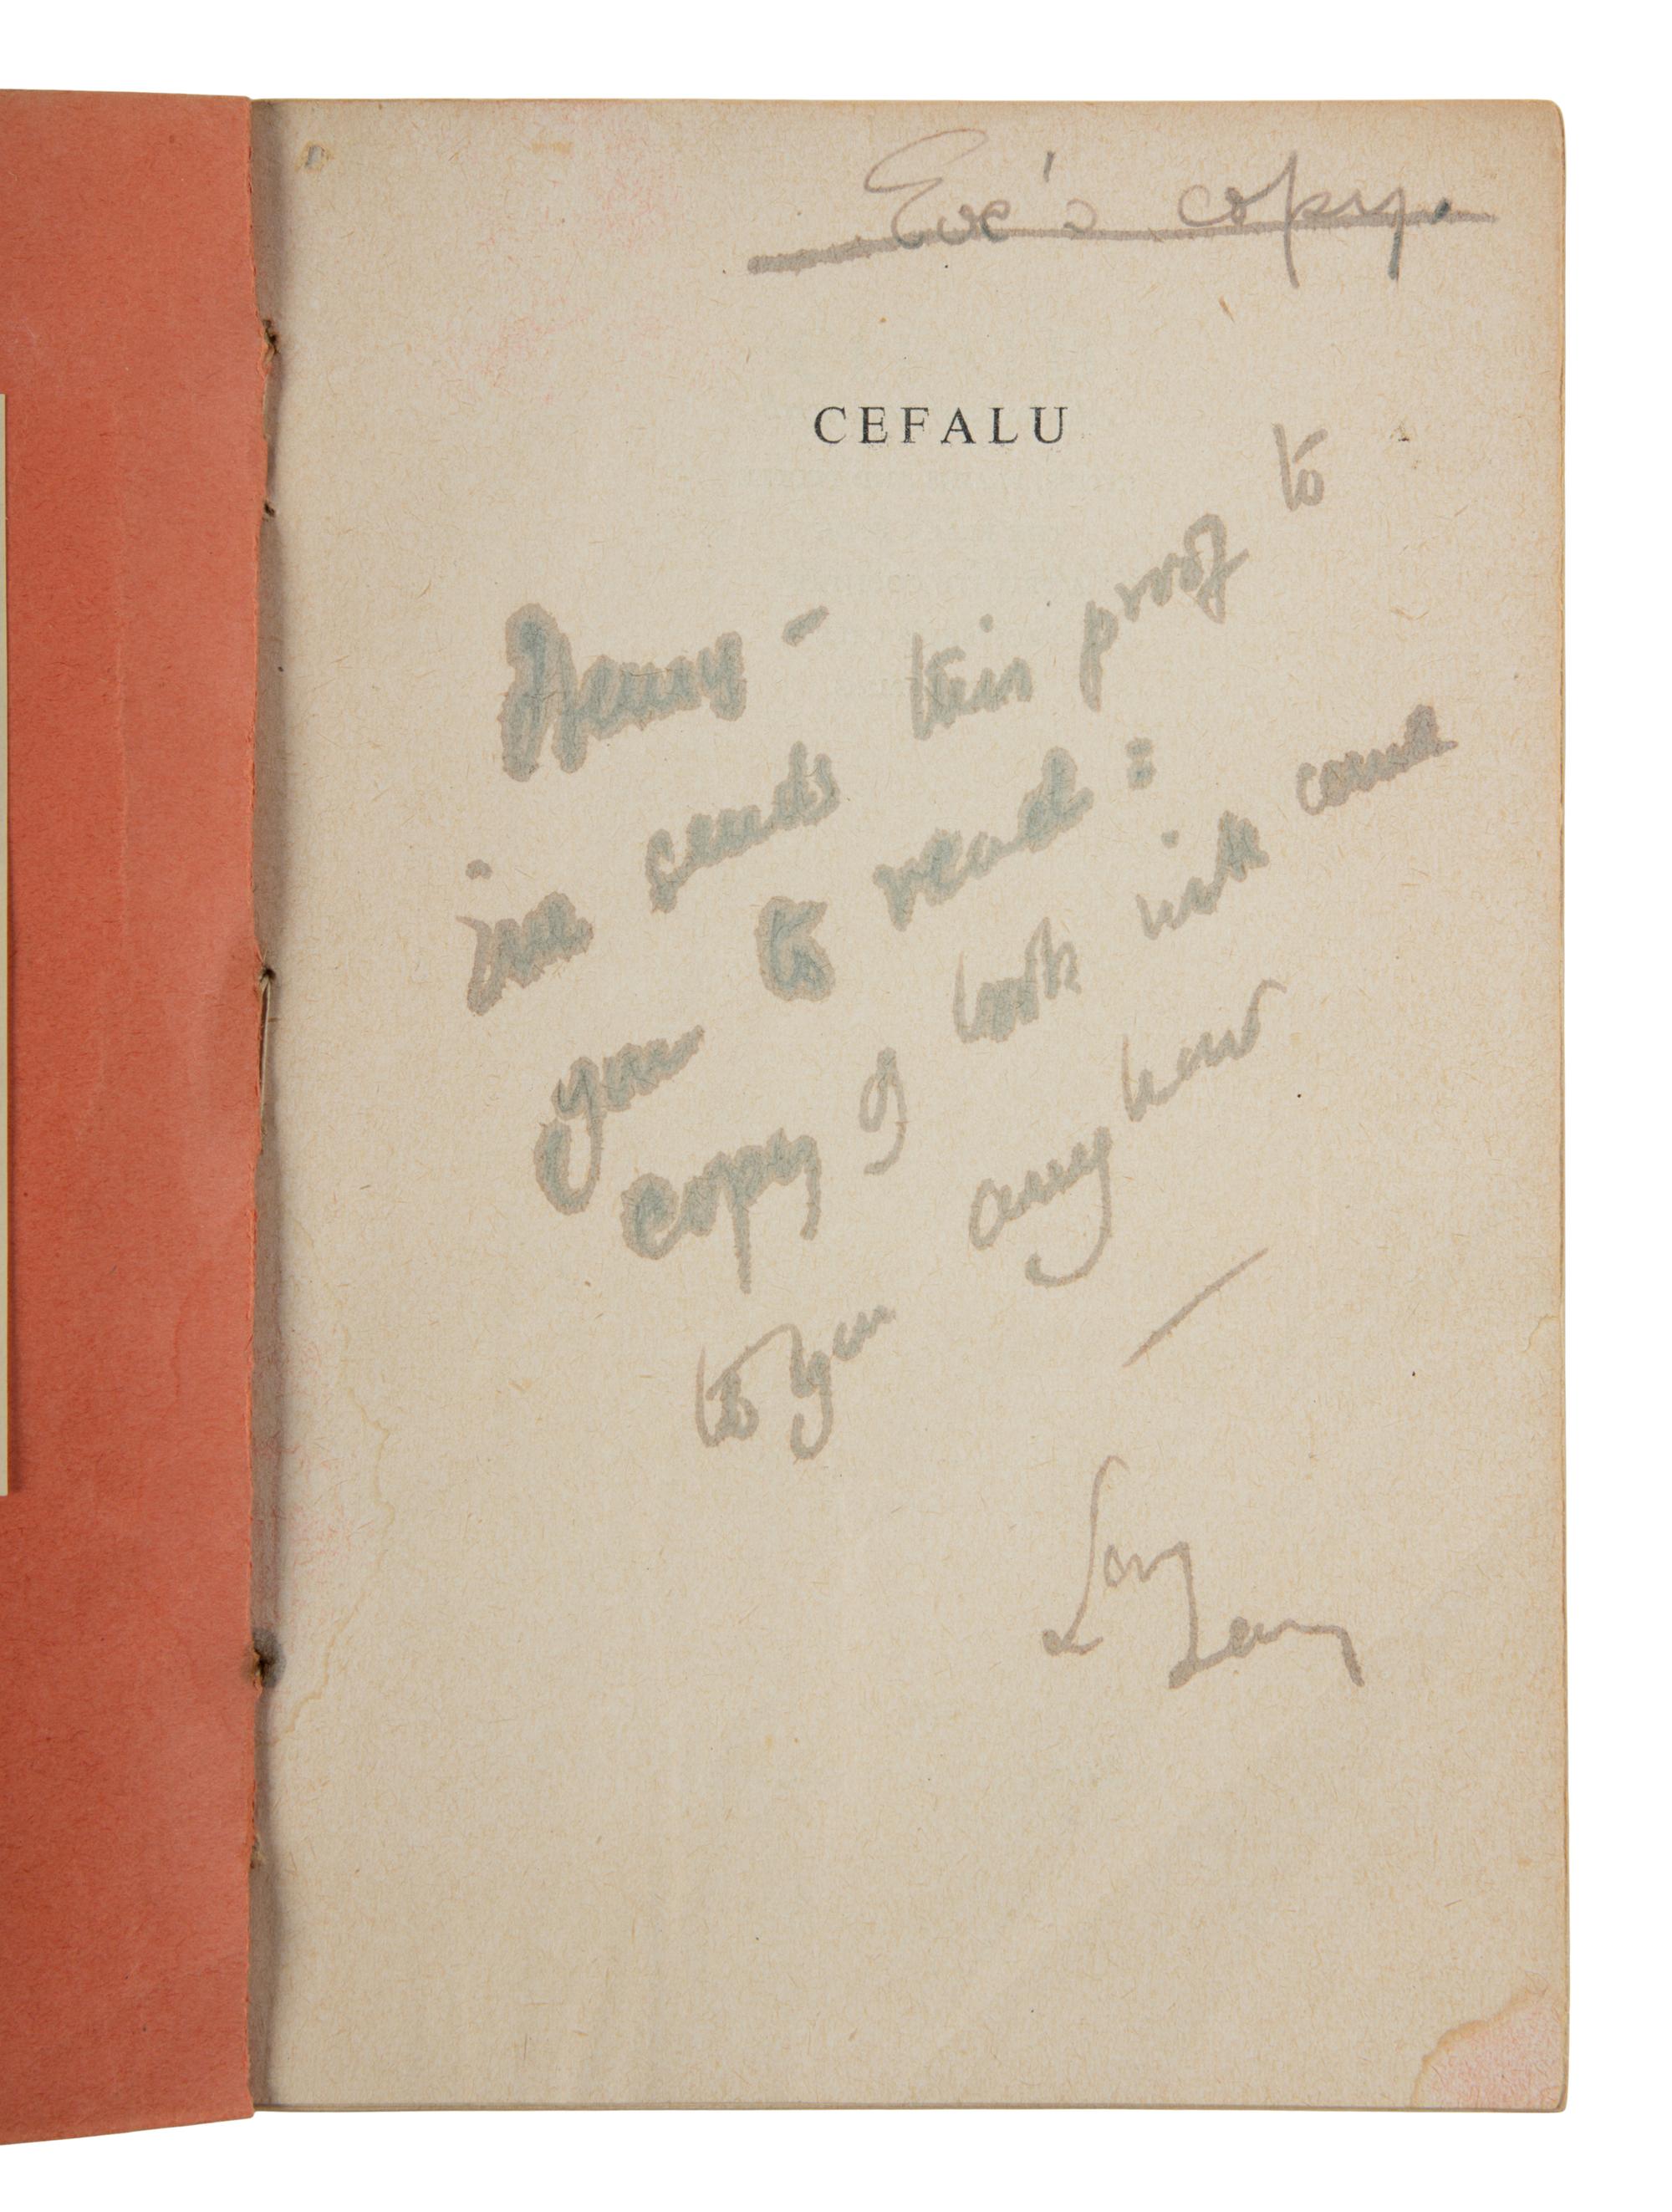 Eve's copy.
CEFALU
Henry –
sends this proof to
you to read :
copy of book will come
to you anyhow —
Love
Larry